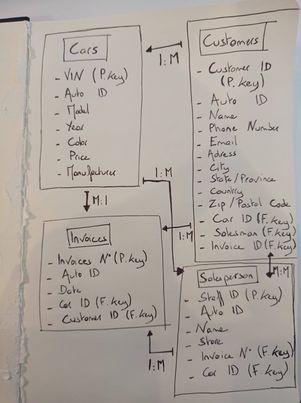 Cars
- VIN (P.key)
- Auto ID
- Model
- Year
- Color
- Price
- Manufacturer
1:M
Customers
- Customer ID
(P.key)
- Auto ID
- Name
- Phone Number
- Email
- Adress
- City
- State/Province
- Country
- Zip/Postal Code
- Car ID (F.key)
- Salesman (F.key)
- Invoice ID (F.key)
1:M
M:1
1:M
Invoices
- Invoices N° (P.key)
- Auto ID
- Date
- Car ID (F.key)
- Customer ID (F.key)
M:M
Salesperson
- Staff ID (P.key)
- Auto ID
- Name
- Store
- Invoice N° (F.key)
- Car ID (F.key)
1:M